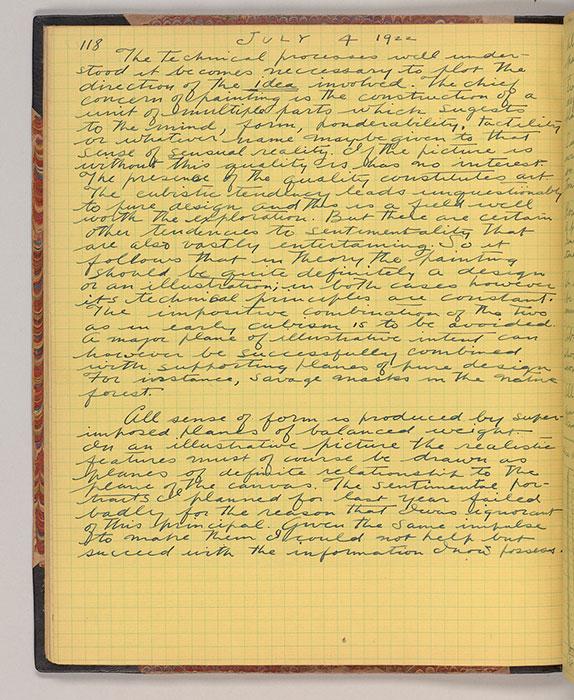 118 JULY 4 1922
The technical processes well under-
stood it becomes neccessary to plot the
direction of the idea involved. The chief
concern of painting is the construction of a
unit of multiple parts which sugests
to the mind, form, ponderability, tactility
or whatever name may be given to that
sense of sensual reality. If the picture is
without this quality it has no interest.
The presence of the quality constitutes art
The cubistic tendency leads unquestionably
to pure design and this is a field well
worth the exploration. But there are certain
other tendencies to sentimentality that
are also vastly entertaining. So it
follows that in theory the painting
should be quite definitely a design
or an illustration; in both cases however
its technical principles are constant.
The impositive combination of the two
as in early cubism is to be avoided.
A major plane of illustrative intent can
however be successfully combined
with supporting planes of pure design
For instance, savage masks in the native
forest.
All sense of form is produced by super-
imposed planes of balanced weight.
In an illustrative picture the realistic
features must of course be drawn as
planes of definite relationship to the
plane of the canvas. The sentimental por-
traits I planned for last year failed
badly for the reason that I was ignorant
of this principal. Given the same impulse
to make them I could not help but
succeed with the information I now possess.